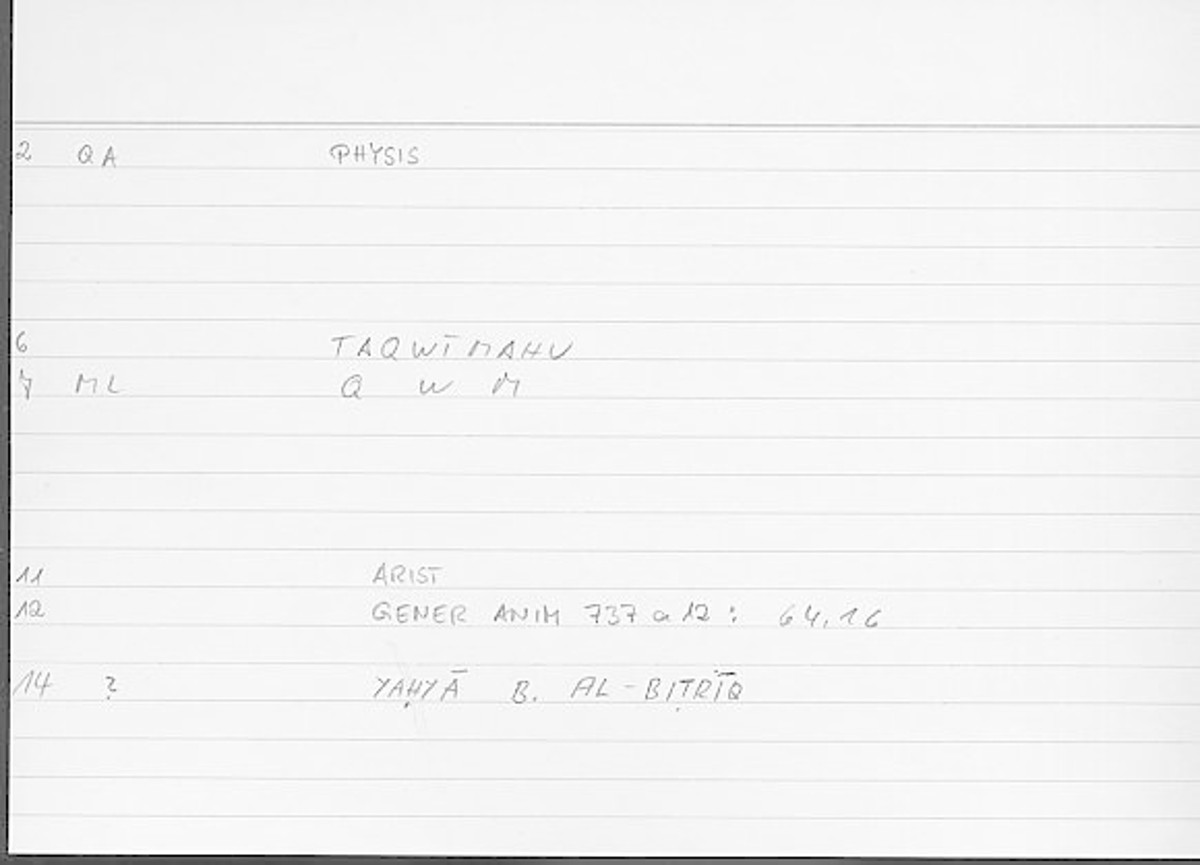 2 QA PHYSIS
6 TAQWĪMAHU
7 ML Q W M
11 ARIST
12 GENER ANIM 737 a 12 : 64,16
14 ? YAḤYĀ B. AL-BIṬRĪQ